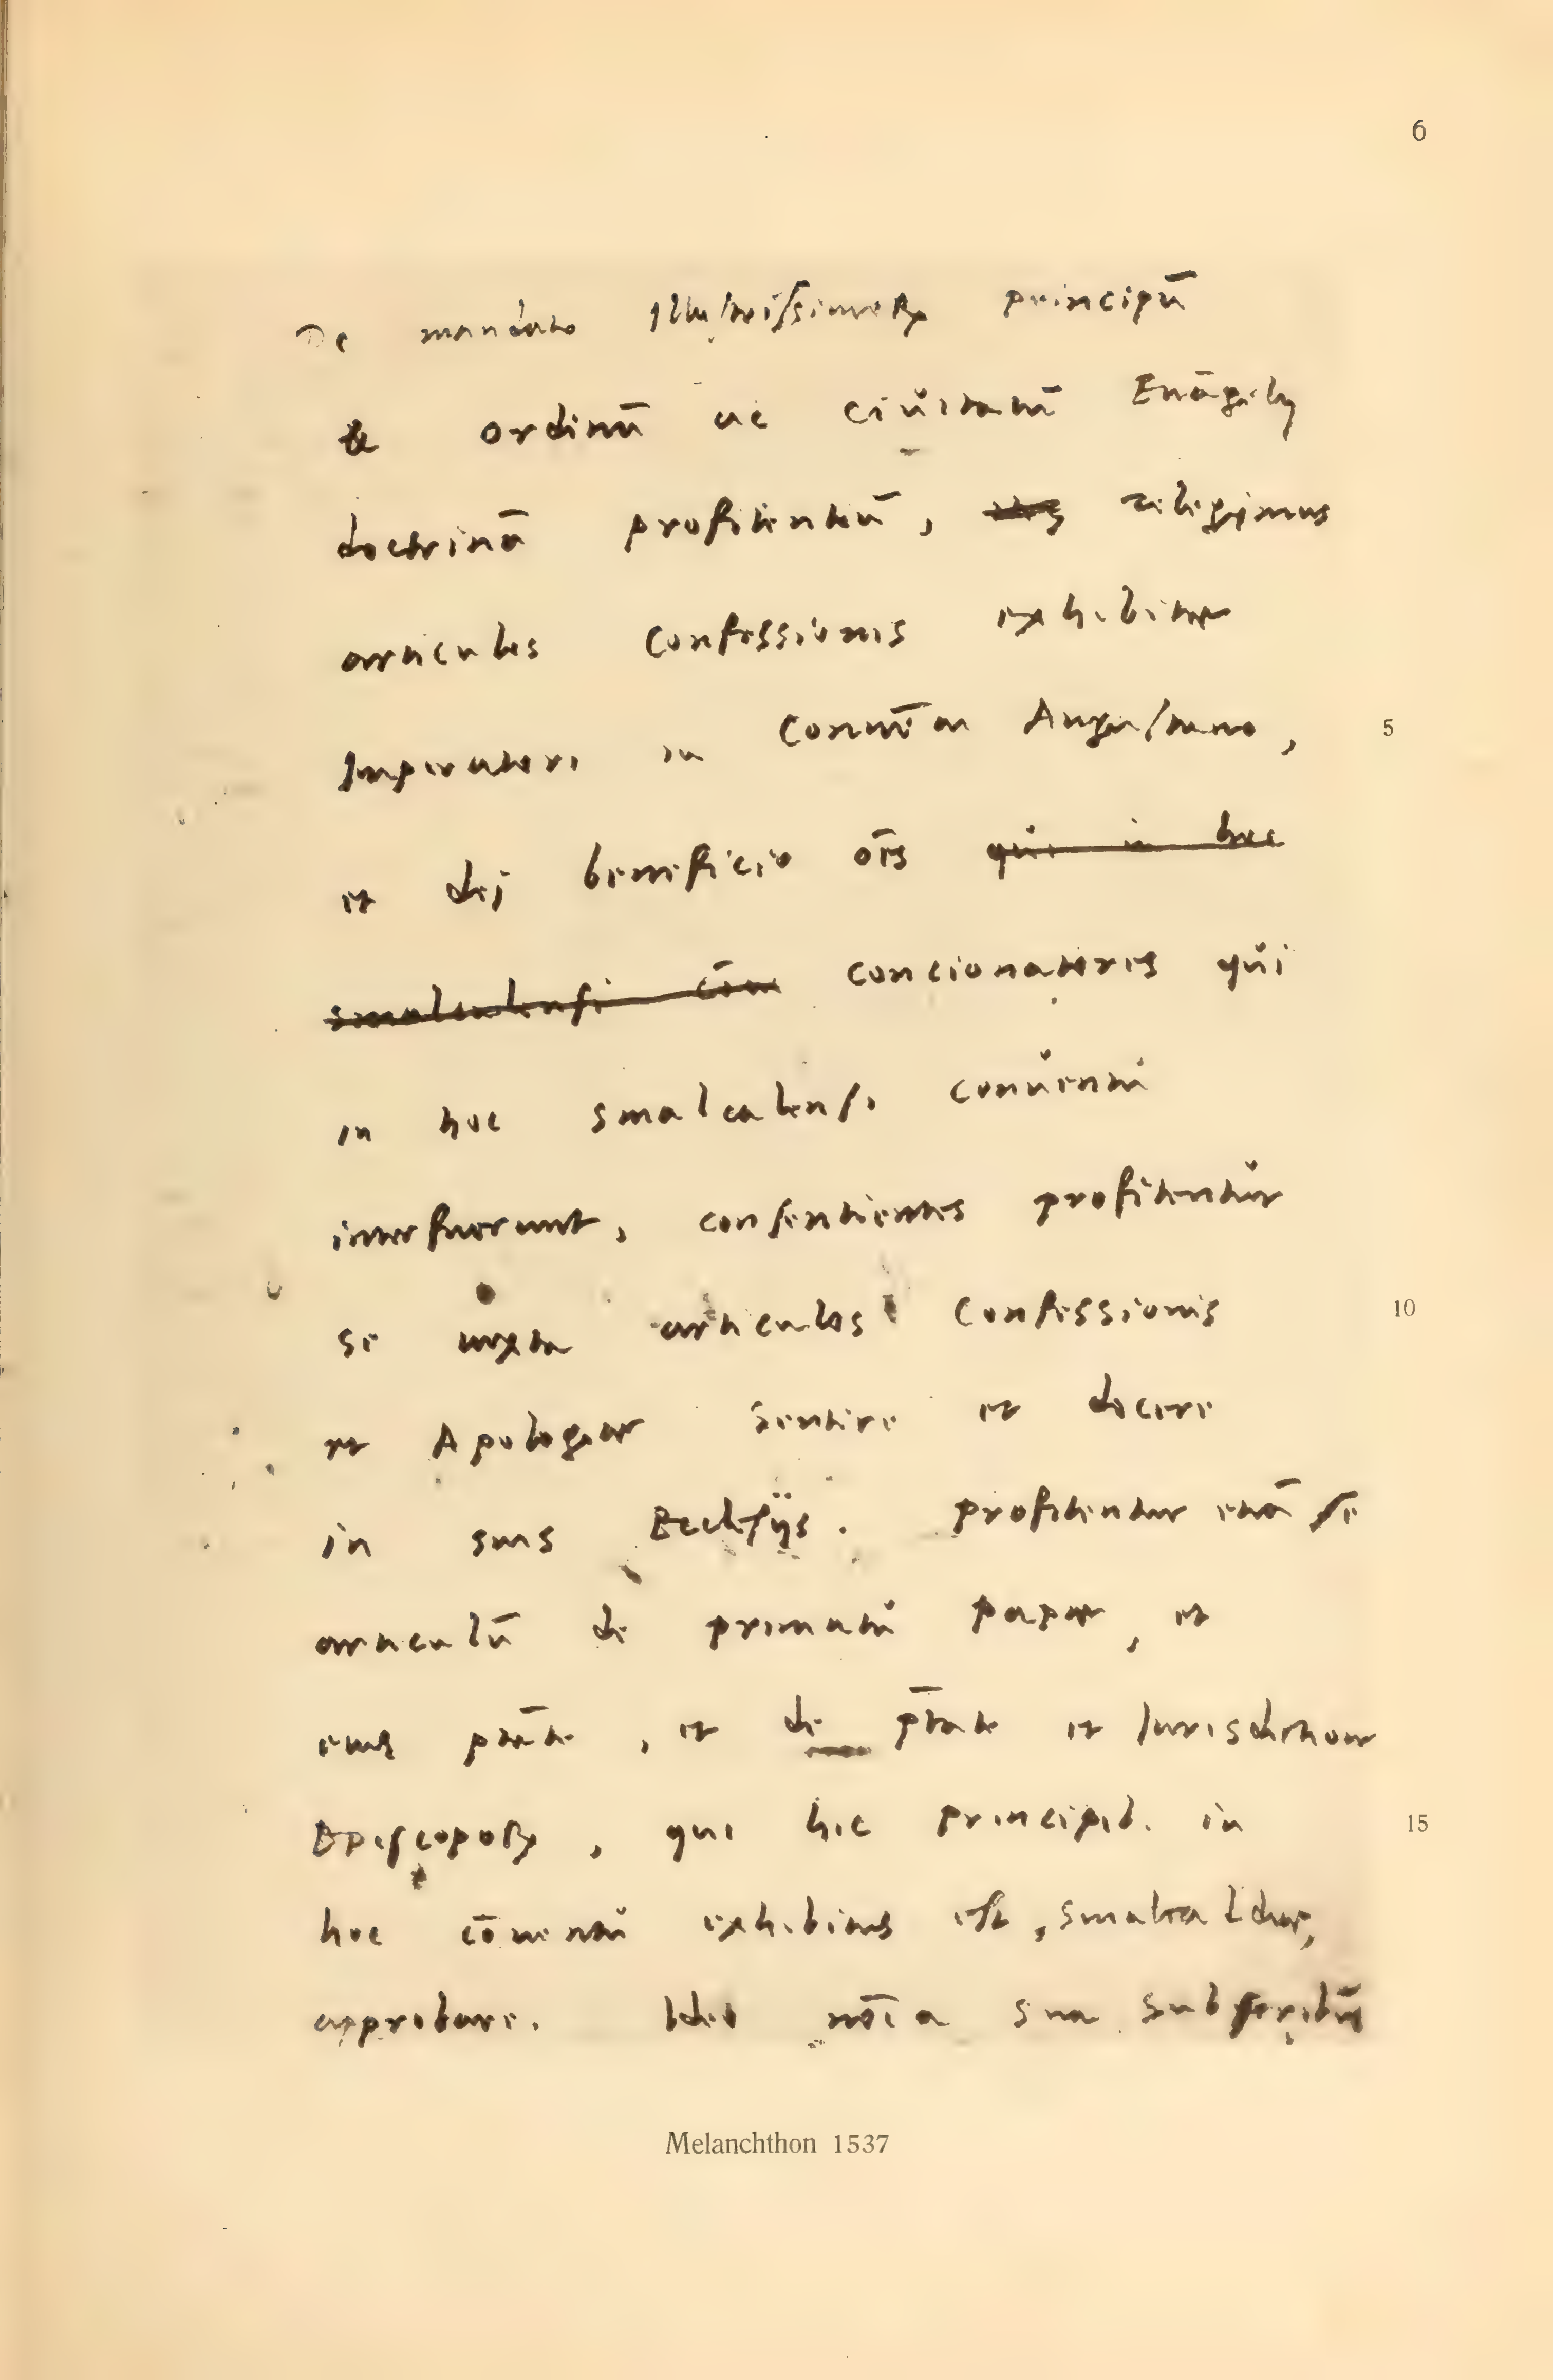 6
De mandato Illustrissimorꝝ principū
& ordinū ac ciuitatū Euāgelij
doctrinā profitentiū, relegimus
articulos confessionis exhibitae
Imperatori in Conuētu Augustano,
5
et dei beneficio oēs qui in hoc
smalcaldensi cōu concionatores qui
in hoc smalcalensi conuentu
interfuerunt, consentientes profitentur
se iuxta articulos Confessionis
10
et Apologiae sentire et docere
in suis Ecclesijs. profitentur etiā se
articulū de primatu papae, et
eius ptāte, et de p̄tate et Iurisdictione
Episcoporꝝ, qui hic principib. in
15
hoc cōuentu exhibitus est, smalcaldiae,
approbare. Ideo nōīa sua subscribūt
Melanchthon 1537